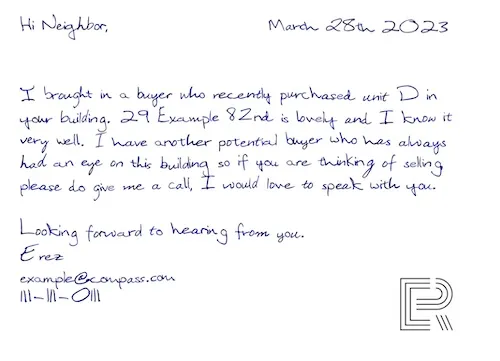 Hi Neighbor, March 28th 2023
I brought in a buyer who recently purchased unit D in
your building. 29 Example 82nd is lovely and I know it
very well. I have another potential buyer who has always
had an eye on this building so if you are thinking of selling
please do give me a call, I would love to speak with you.
Looking forward to hearing from you.
Erez
example@compass.com
111-111-0111
ER